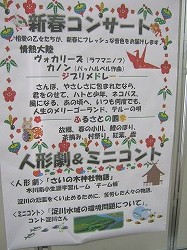 新春コンサート
相愛の乙女たちが、新春にフレッシュな音色をお届けします。
情熱大陸
ヴォカリーズ（ラフマニノフ）
カノン（パッヘルベル作曲）
ジブリメドレー
さんぽ、やさしさに包まれたなら、
君をのせて、ハトと少年、ネコバス、
風になる、あの頃へ、いつも何度でも、
人生のメリーゴーランド、テルーの唄
ふるさとの四季
故郷、春の小川、鯉のぼり、
茶摘み、村祭り、紅葉、
人形劇＆ミニコント
＜人形劇＞「さいの木神社物語」
＜ミニコント＞「淀川水域の環境問題について」
コント淀川さん